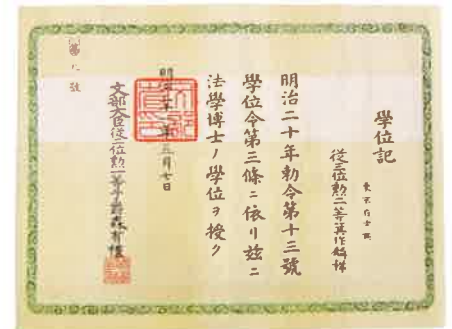 學位記
東京府士族
從三位勲二等箕作麟祥
明治二十年勅令第十三號
學位令第三條ニ依リ玆ニ
法學博士ノ學位ヲ授ク
明治廿一年五月七日
文部大臣從二位勲一等子爵森有禮
第一號